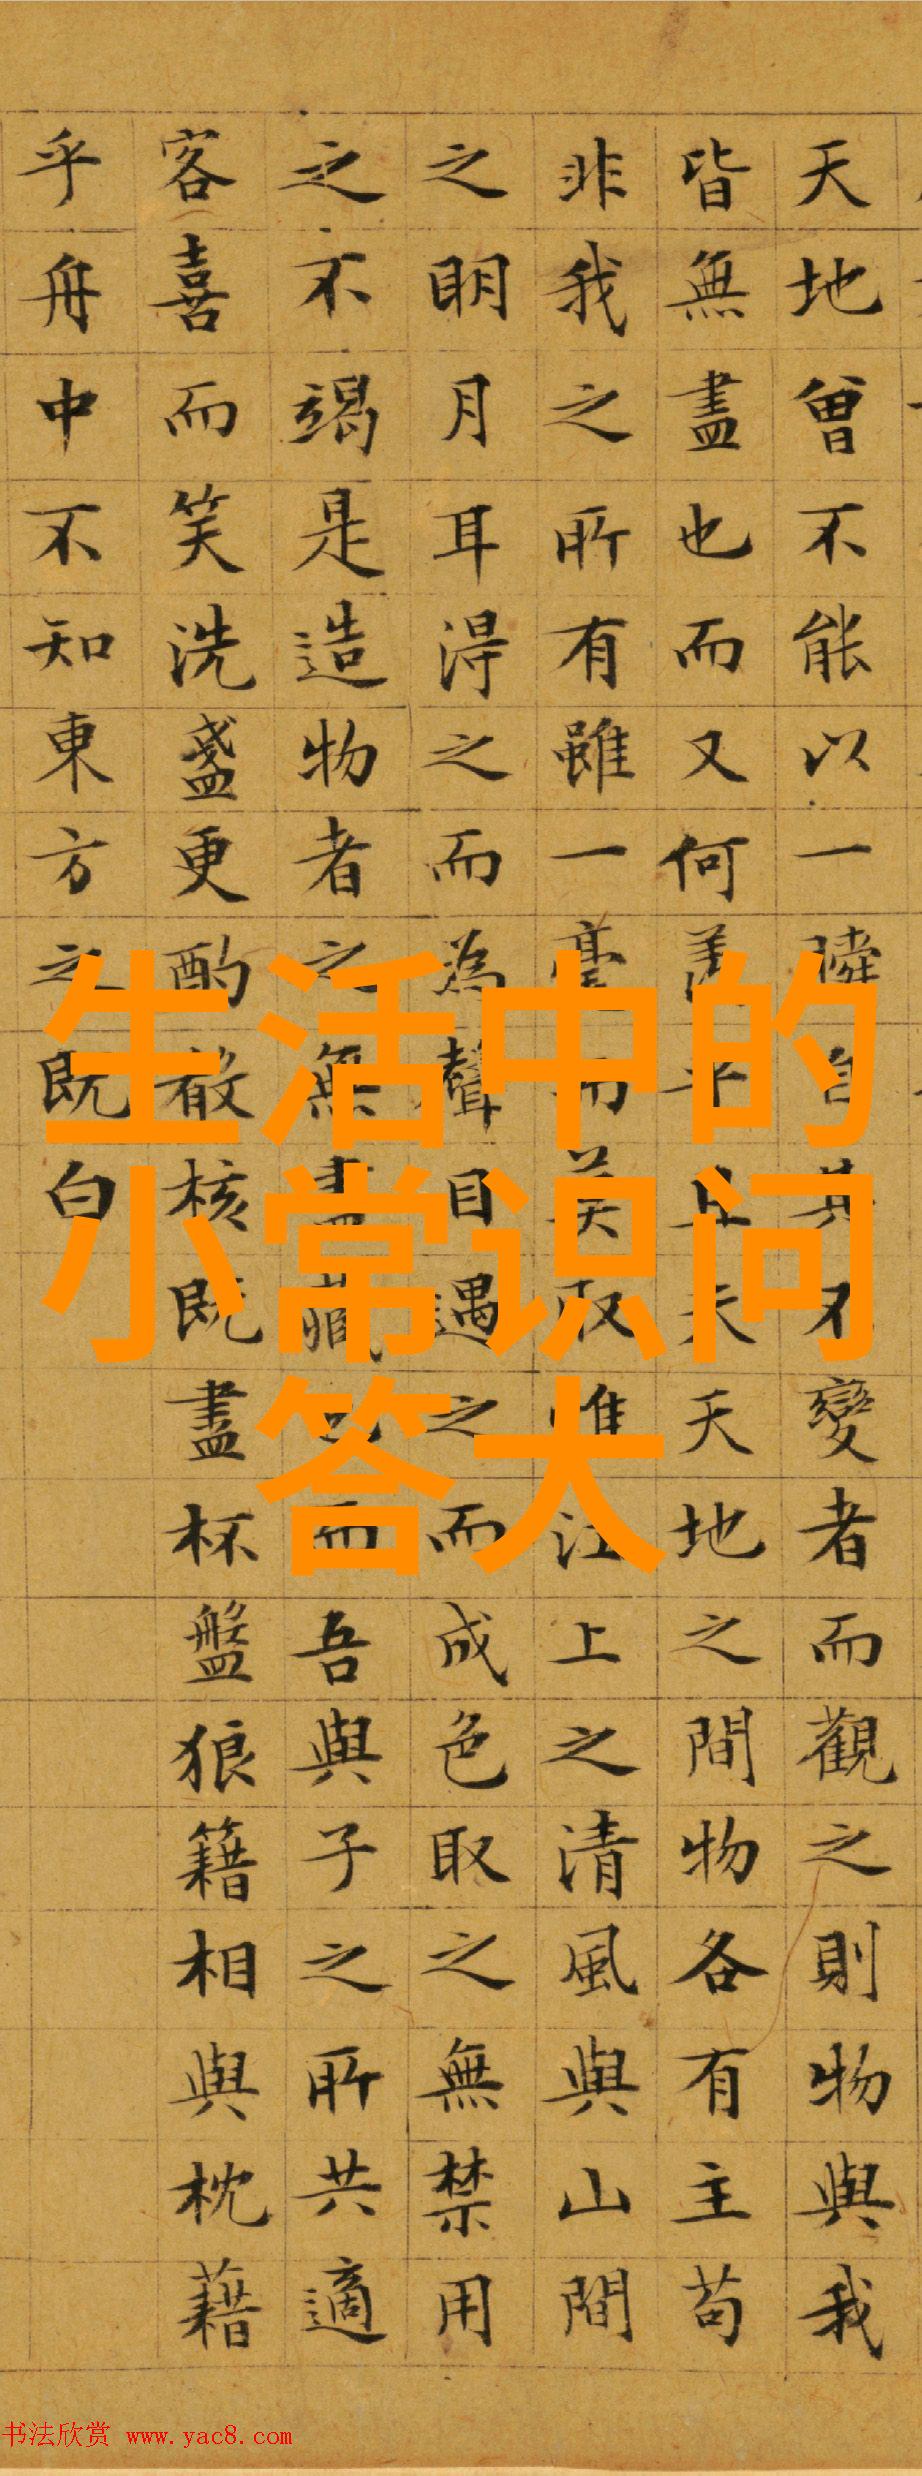 天地曾不能以一瞬自其不變者而觀之則物與我
皆無盡也而又何羨乎且夫天地之間物各有主苟
非我之所有雖一毫而莫取惟江上之清風與山間
之明月耳得之而為聲目遇之而成色取之無禁用
之不竭是造物者之無盡藏也而吾與子之所共適
客喜而笑洗盞更酌殽核既盡杯盤狼籍相與枕藉
乎舟中不知東方之既白
生活中的
小常识问
答大
书法欣赏 www.yac8.com